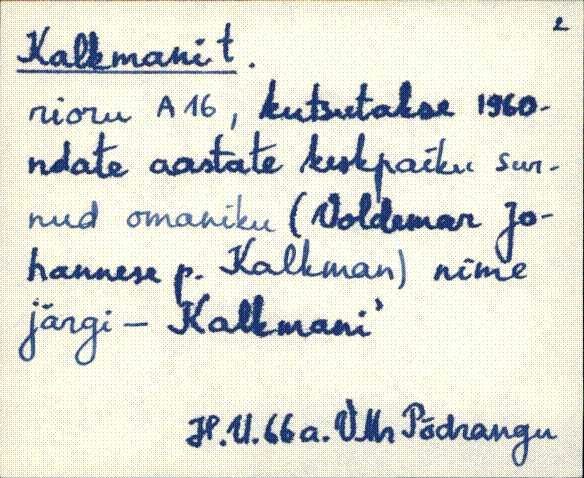 2
Kalkmani t.
rioru A16, kutsutakse 1960-
ndate aastate keskpaiku sur-
nud omaniku (Voldemar Jo-
hannese p. Kalkman) nime
järgi – Kalkmani'
H.U. 66 a. VMr Põdrangu